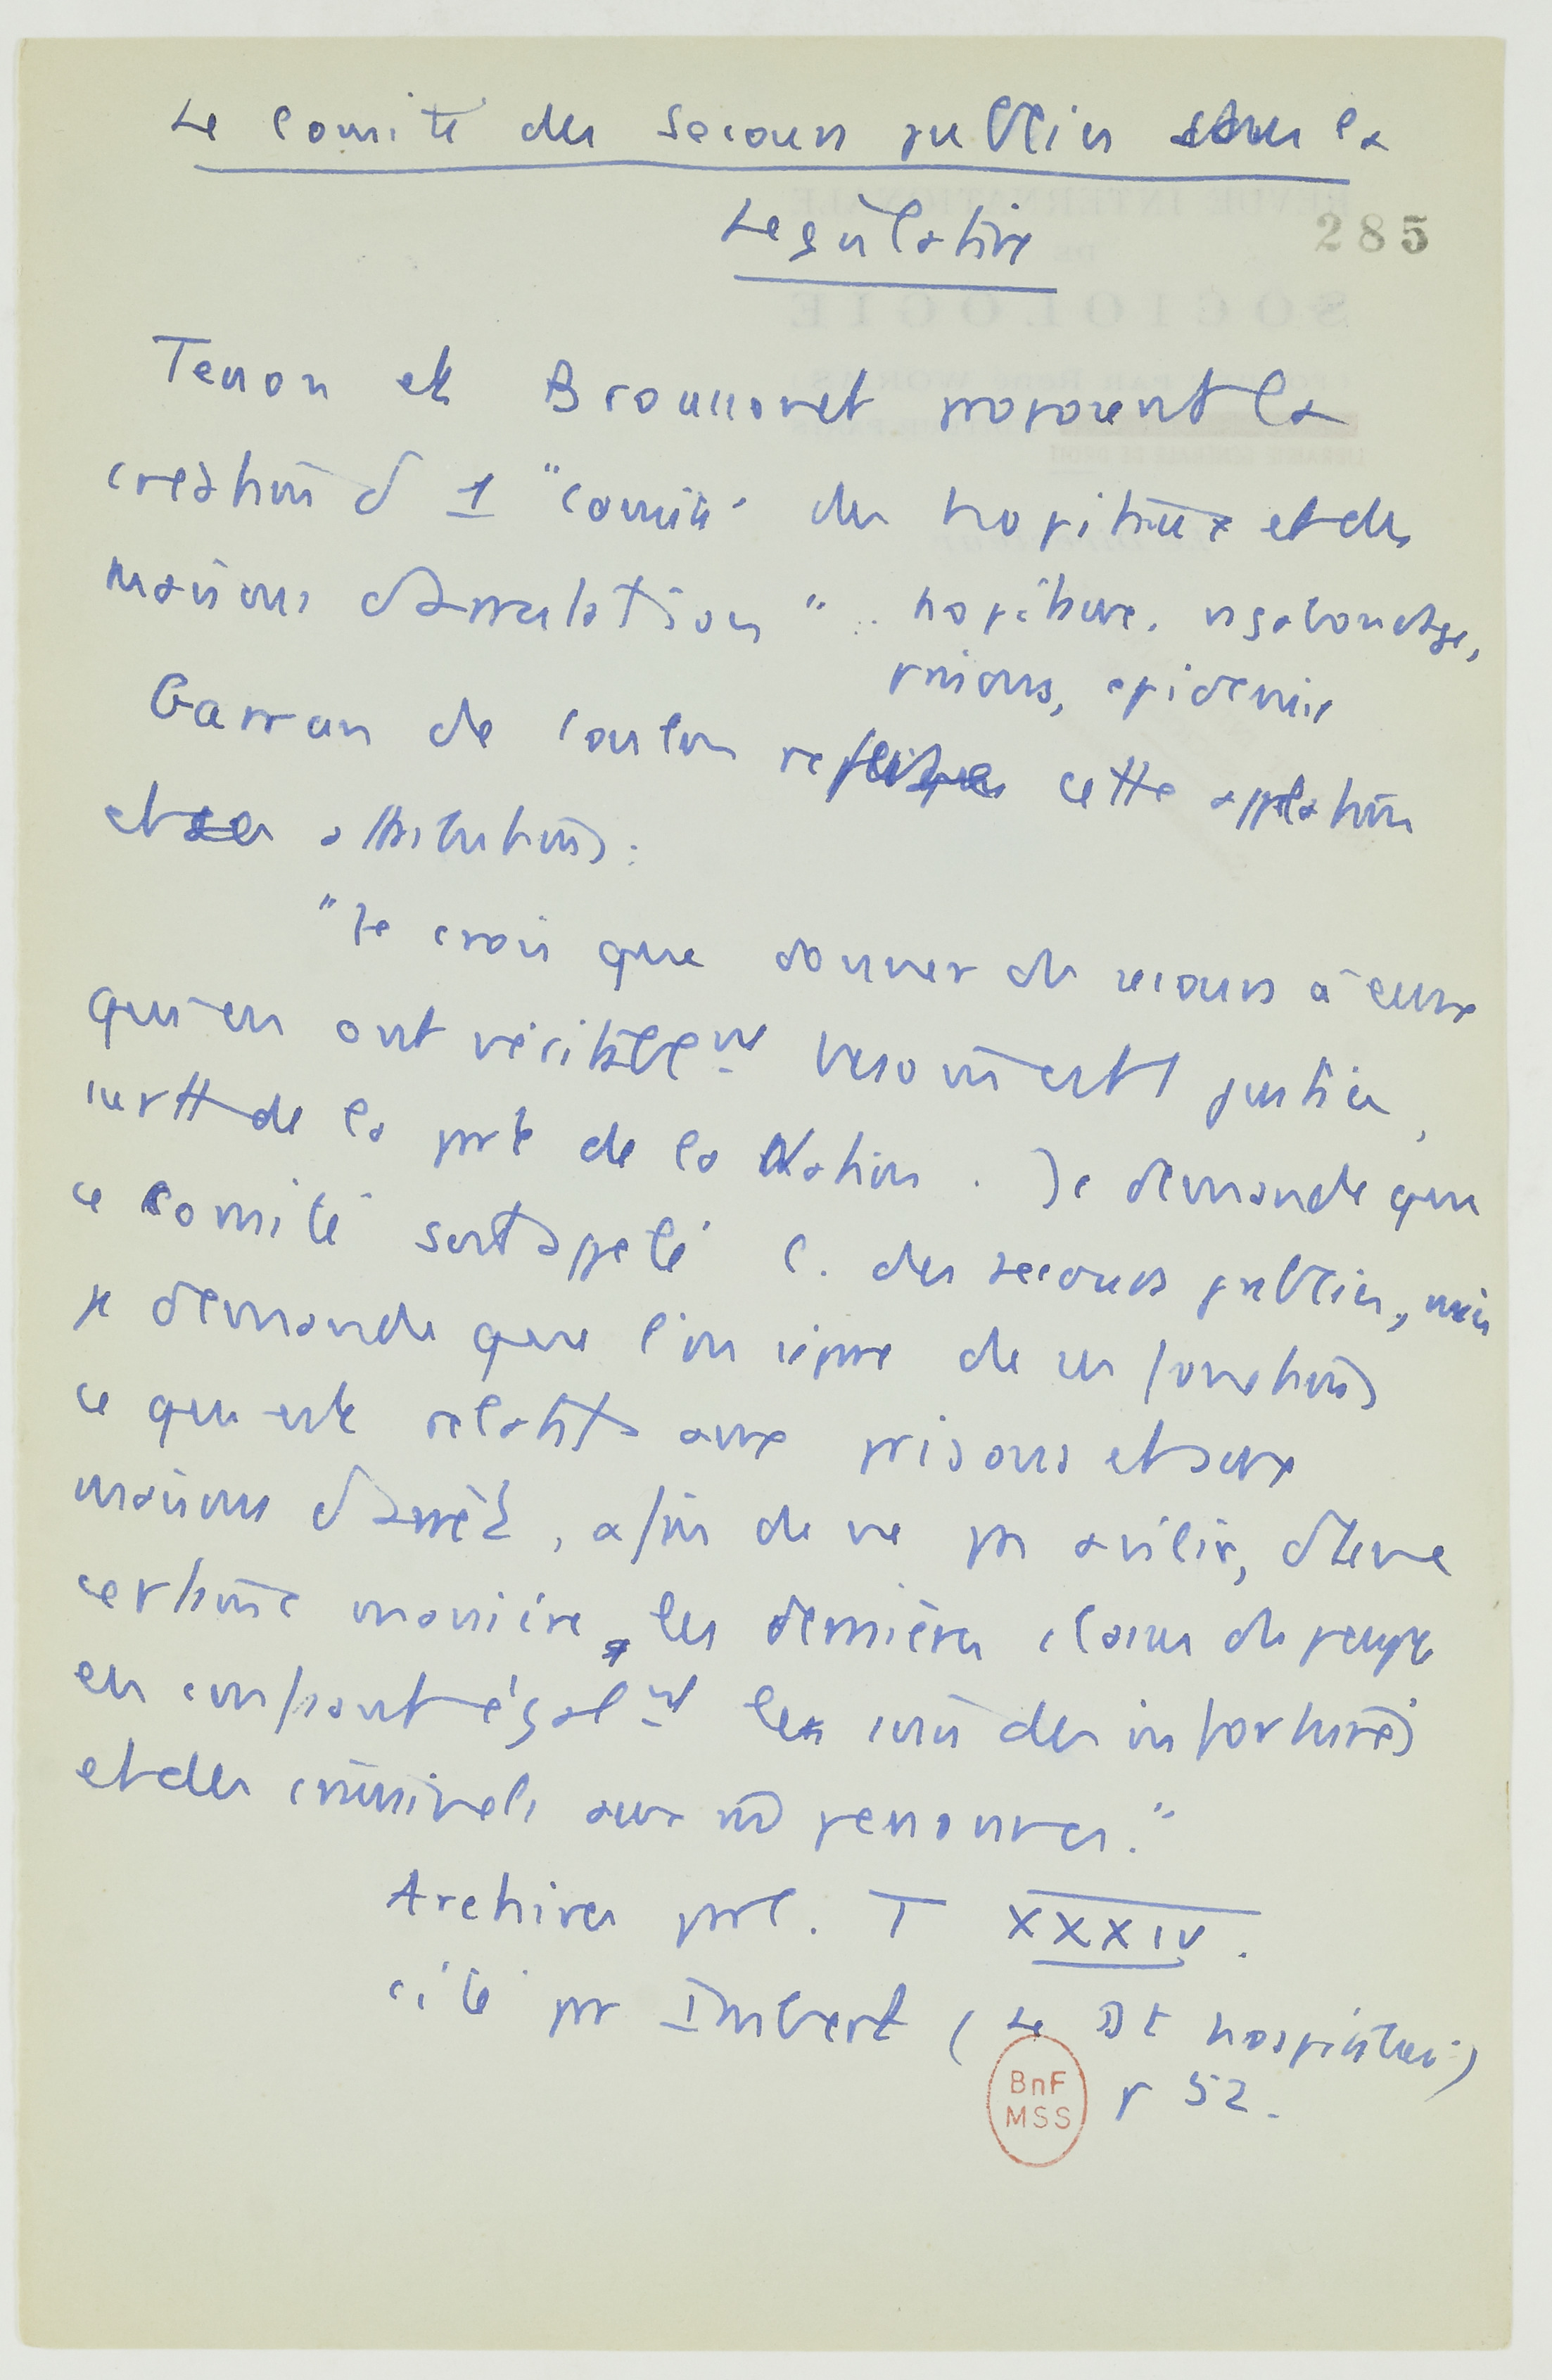 Le Comité des Secours publics sous la
Législative
285
Tenon et Broussonet proposent la
création d'1 "comité des hopitaux et des
maisons d'arrestation" : hopitaux, vagabondage,
prisons, epidémie
Garran de Coulon refuse cette appelation
et ses attributions :
"Je crois que donner des secours à ceux
qui en ont véritablemt besoin est 1 justice,
1 dette de la part de la Nation. Je demande que
ce comité soit appelé C. des secours publics, mais
je demande que l'on sépare de ces fonctions
ce qui est relatif aux prisons et aux
maisons d'arrêt, afin de ne pas avilir, d'une
certaine manière, les dernières classes du peuple
en confiant égalmt les soins des infortunés
et des criminels aux m̄ personnes."
Archives parl. T XXXIV.
cité par Imbert (Le Dt hospitalier)
p 52.
BnF
MSS